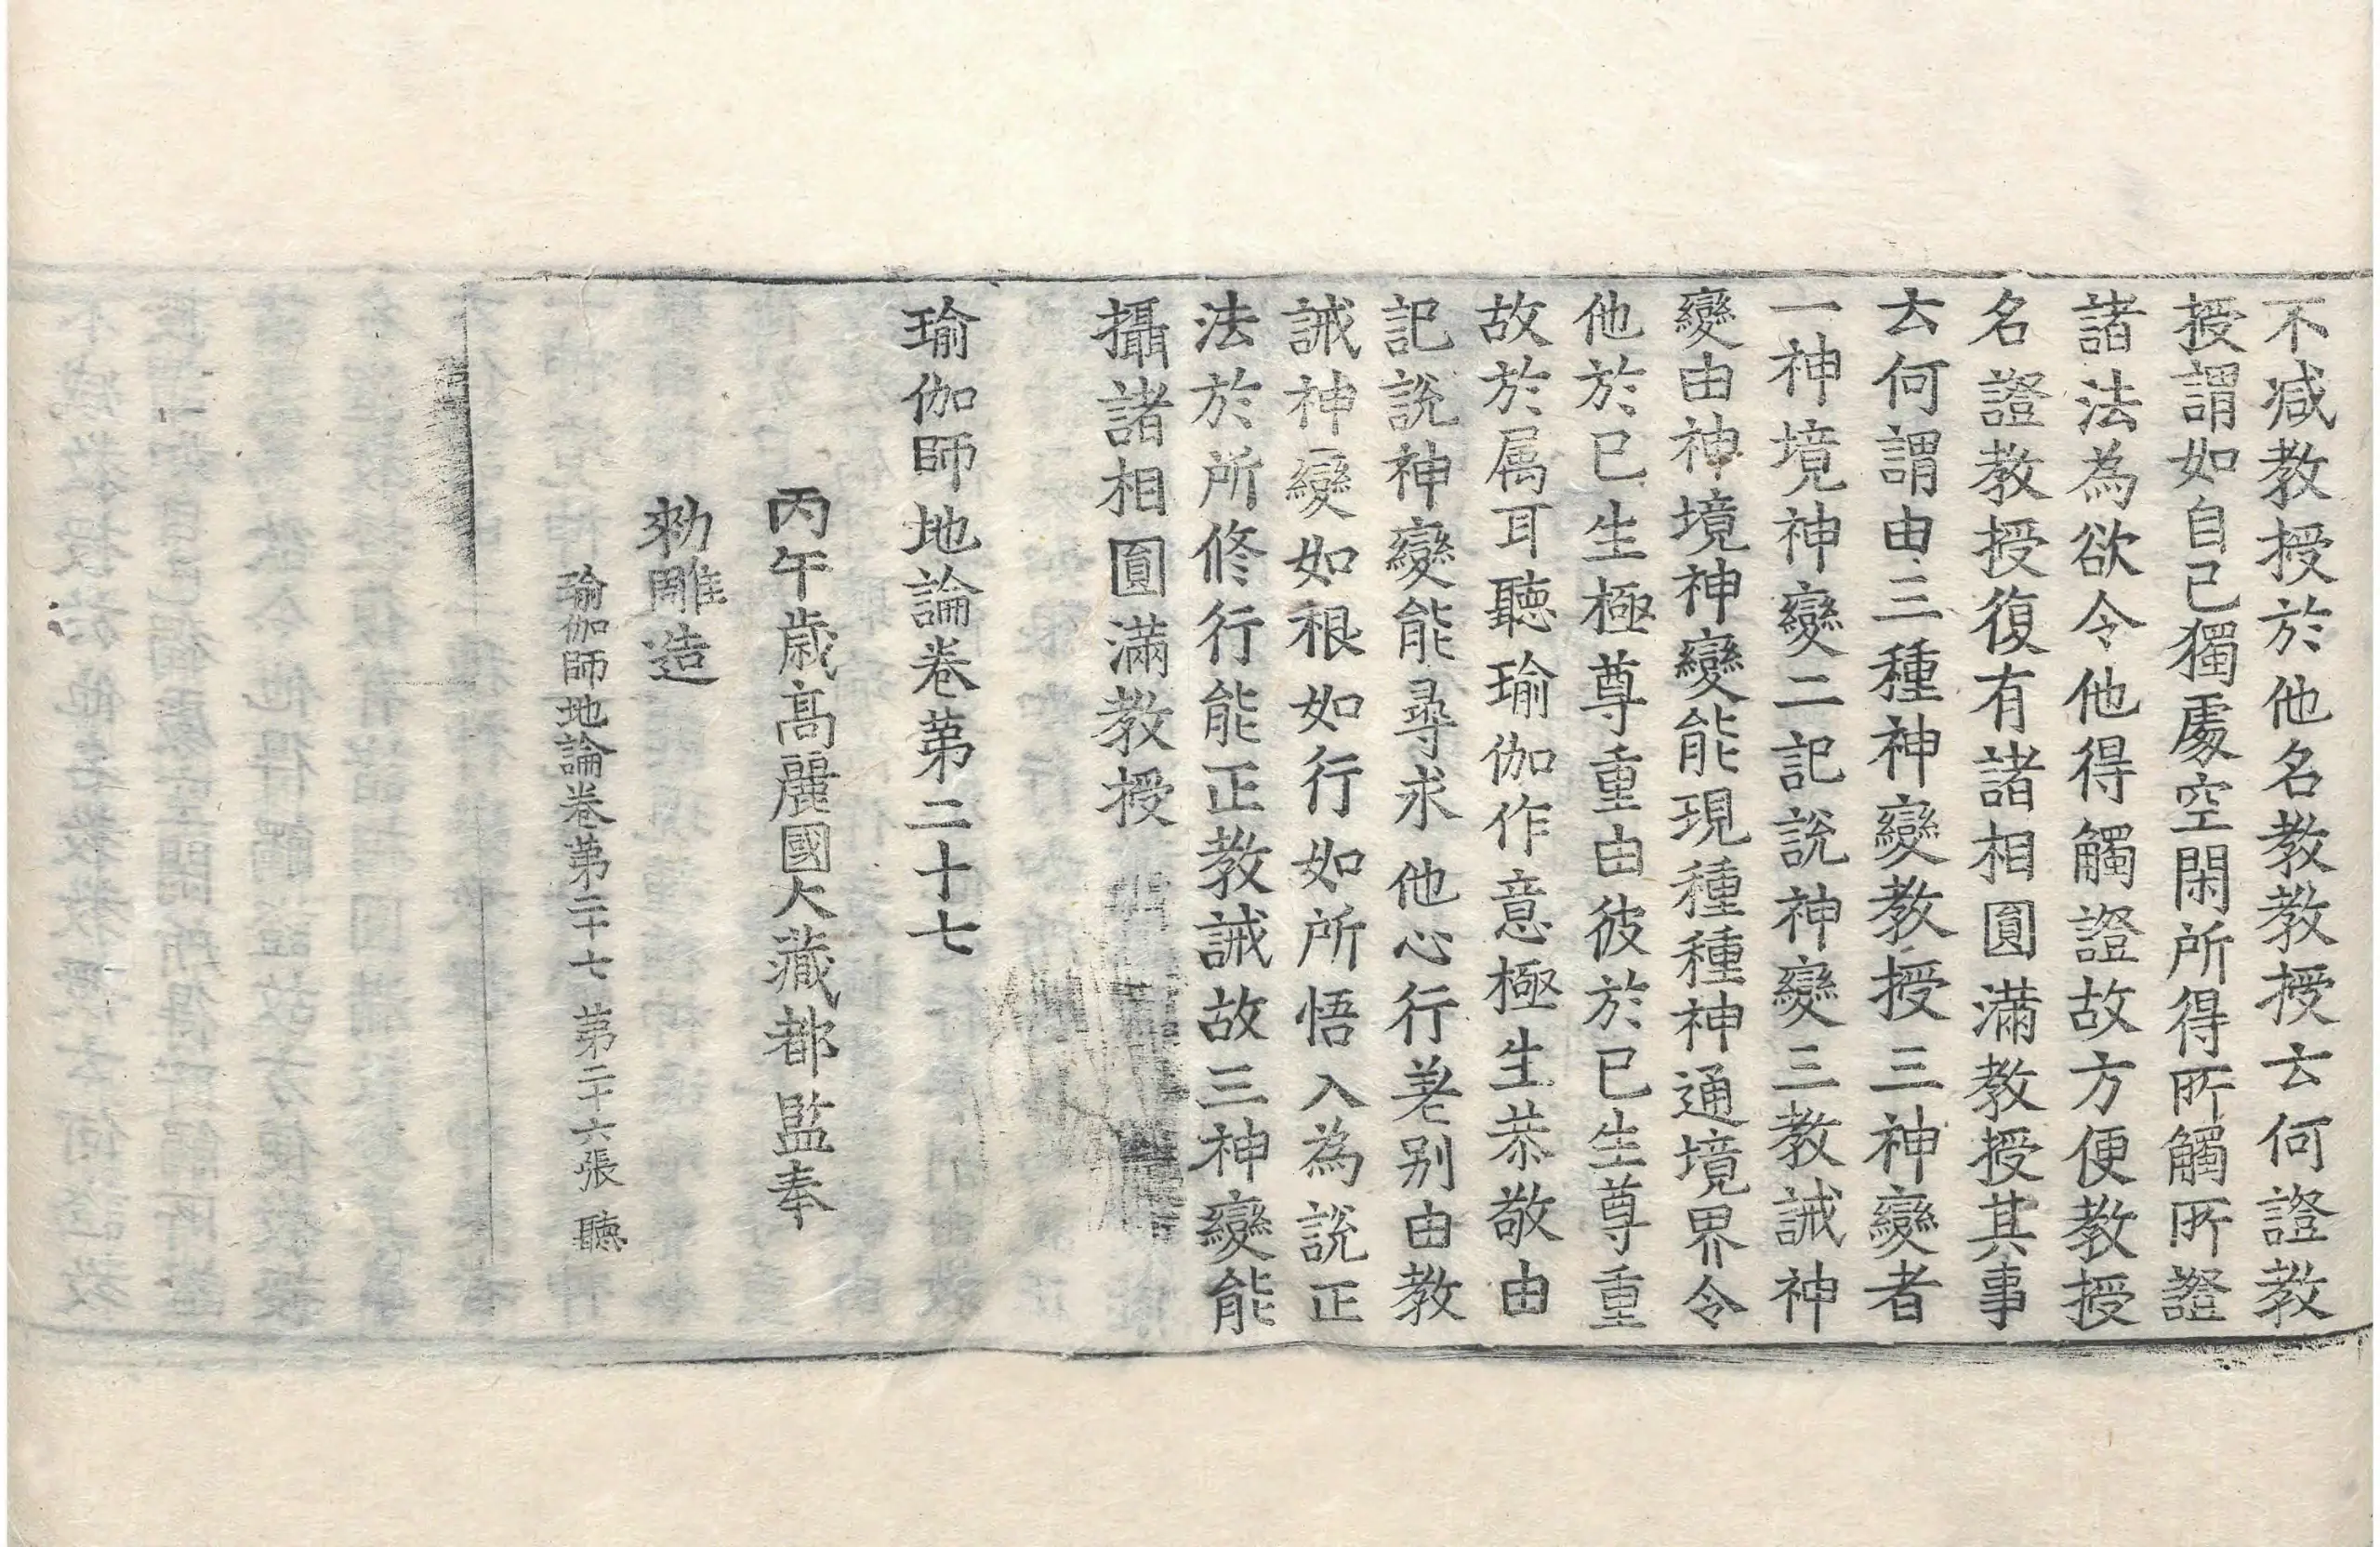 不减教授於他名教教授云何證教
授謂如自己獨處空閑所得所觸所證
諸法為欲令他得觸證故方便教授
名證教授復有諸相圓滿教授其事
云何謂由三種神變教授三神變者
一神境神變二記說神變三教誡神
變由神境神變能現種種神通境界令
他於已生極尊重由彼於已生尊重
故於属耳聽瑜伽作意極生恭敬由
記說神變能尋求他心行差別由教
誡神變如根如行如所悟入為說正
法於所修行能正教誡故三神變能
攝諸相圓滿教授
瑜伽師地論卷第二十七
丙午歳高麗國大藏都監奉
勅雕造
瑜伽師地論卷第二十七 第二十六張 聽